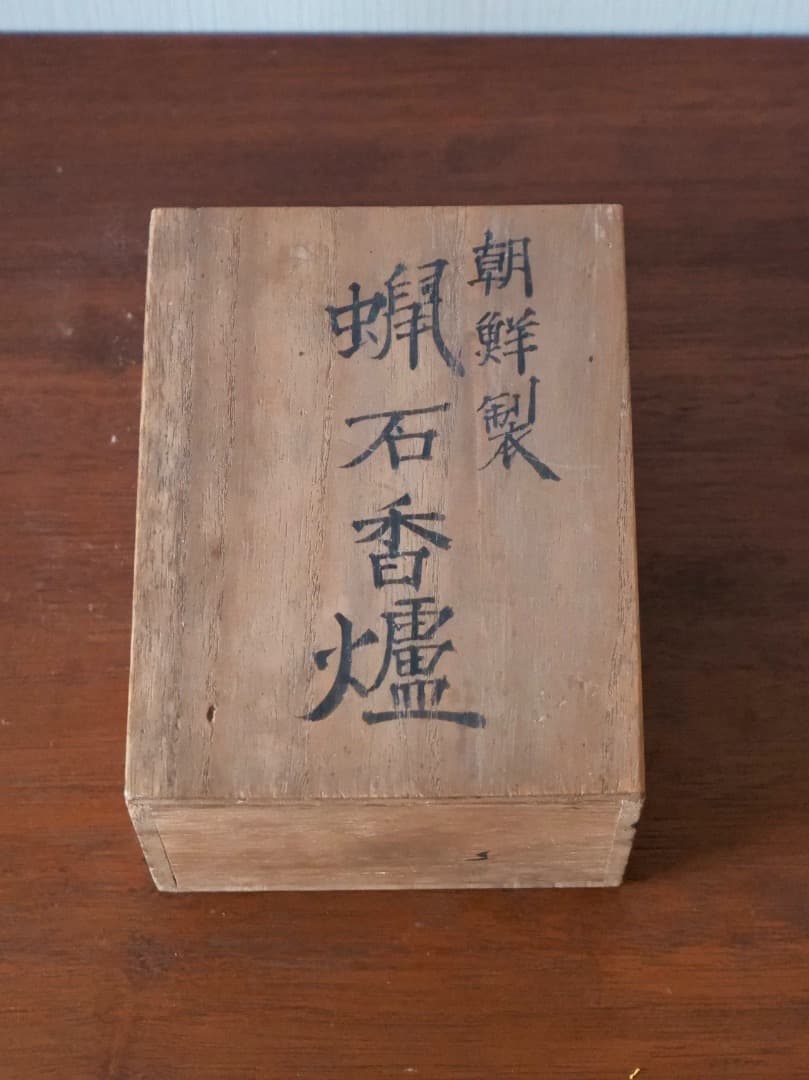 朝鮮製
蝋石香爐